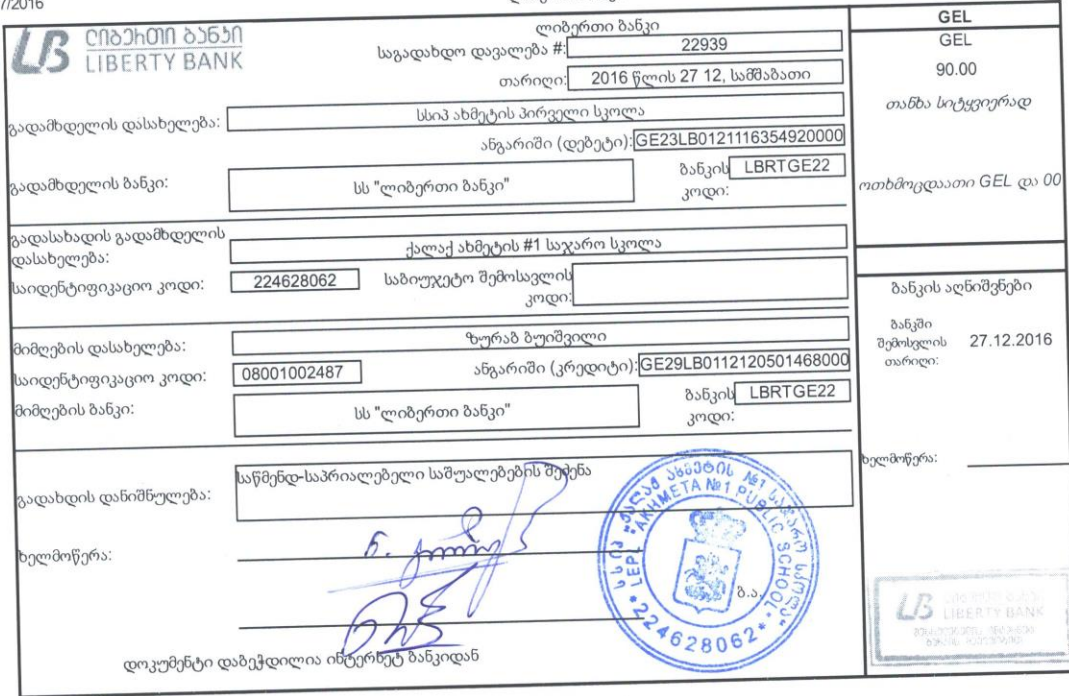 7/2016
ლიბერთი ბანკი
LIBERTY BANK
ლიბერთი ბანკი
საგადახდო დავალება #: 22939
თარიღი: 2016 წლის 27 12, სამშაბათი
გადამხდელის დასახელება: სსიპ ახმეტის პირველი სკოლა
ანგარიში (დებეტი): GE23LB0121116354920000
გადამხდელის ბანკი: სს "ლიბერთი ბანკი" ბანკის LBRTGE22
კოდი:
გადასახადის გადამხდელის
დასახელება: ქალაქ ახმეტის #1 საჯარო სკოლა
საიდენტიფიკაციო კოდი: 224628062 საბიუჯეტო შემოსავლის
კოდი:
მიმღების დასახელება: ზურაბ ბუიშვილი
საიდენტიფიკაციო კოდი: 08001002487 ანგარიში (კრედიტი): GE29LB0112120501468000
მიმღების ბანკი: სს "ლიბერთი ბანკი" ბანკის LBRTGE22
კოდი:
გადახდის დანიშნულება: საწმენდ-საპრიალებელი საშუალებების შეძენა
ხელმოწერა:
ბ.ა.
დოკუმენტი დაბეჭდილია ინტერნეტ ბანკიდან
GEL
GEL
90.00
თანხა სიტყვიერად
ოთხმოცდაათი GEL და 00
ბანკის აღნიშვნები
ბანკში
შემოსვლის 27.12.2016
თარიღი:
ხელმოწერა:
სსიპ "ქალაქ ახმეტის №1 საჯარო სკოლა"
LEPL "AKHMETA №1 PUBLIC SCHOOL"
*224628062*
LIBERTY BANK